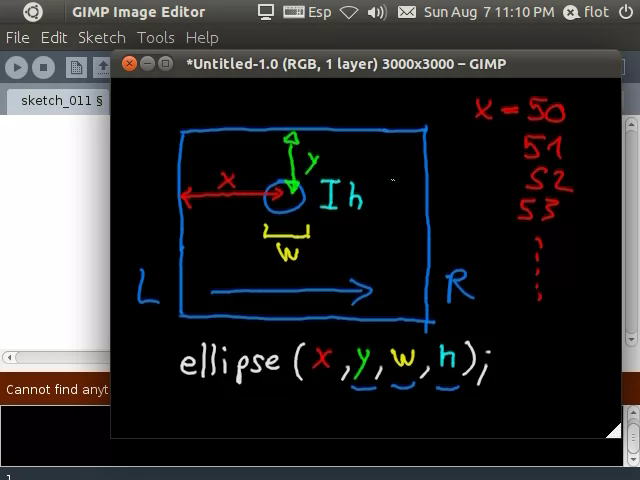 GIMP Image Editor Esp Sun Aug 7 11:10 PM flot
File Edit Sketch Tools Help
*Untitled-1.0 (RGB, 1 layer) 3000x3000 – GIMP
sketch_011 §
x = 50
51
52
53
y
x
I h
w
L
R
ellipse (x, y, w, h);
Cannot find anyt
1